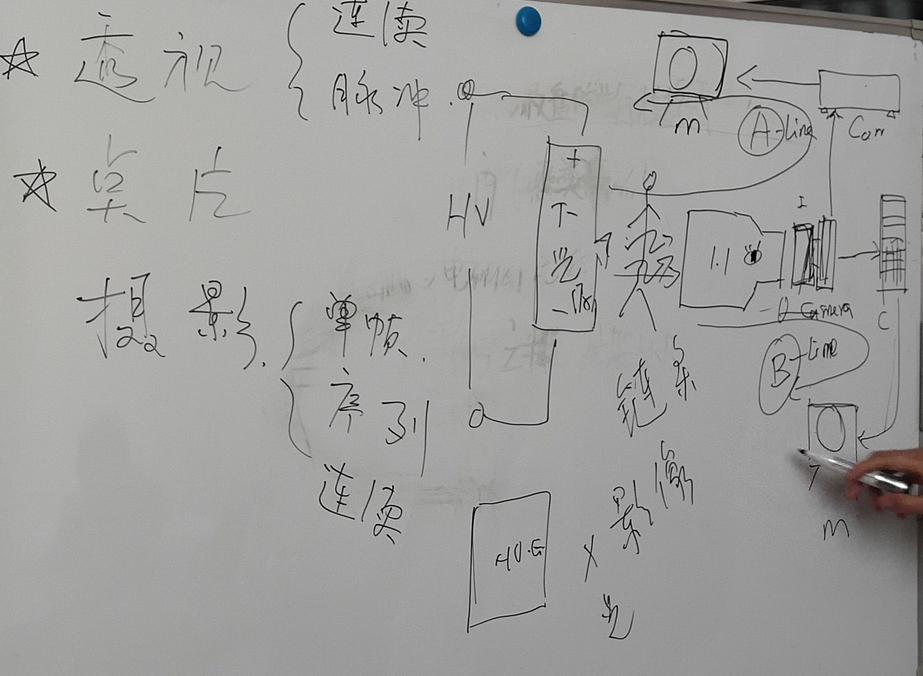 ☆ 透视
连续
脉冲
☆ 点片
摄影
单帧
序列
连续
HV
+
光
-
HV.G
X
影像
链条
1.1
I
Camera
Con
A-line
m
B-line
C
m